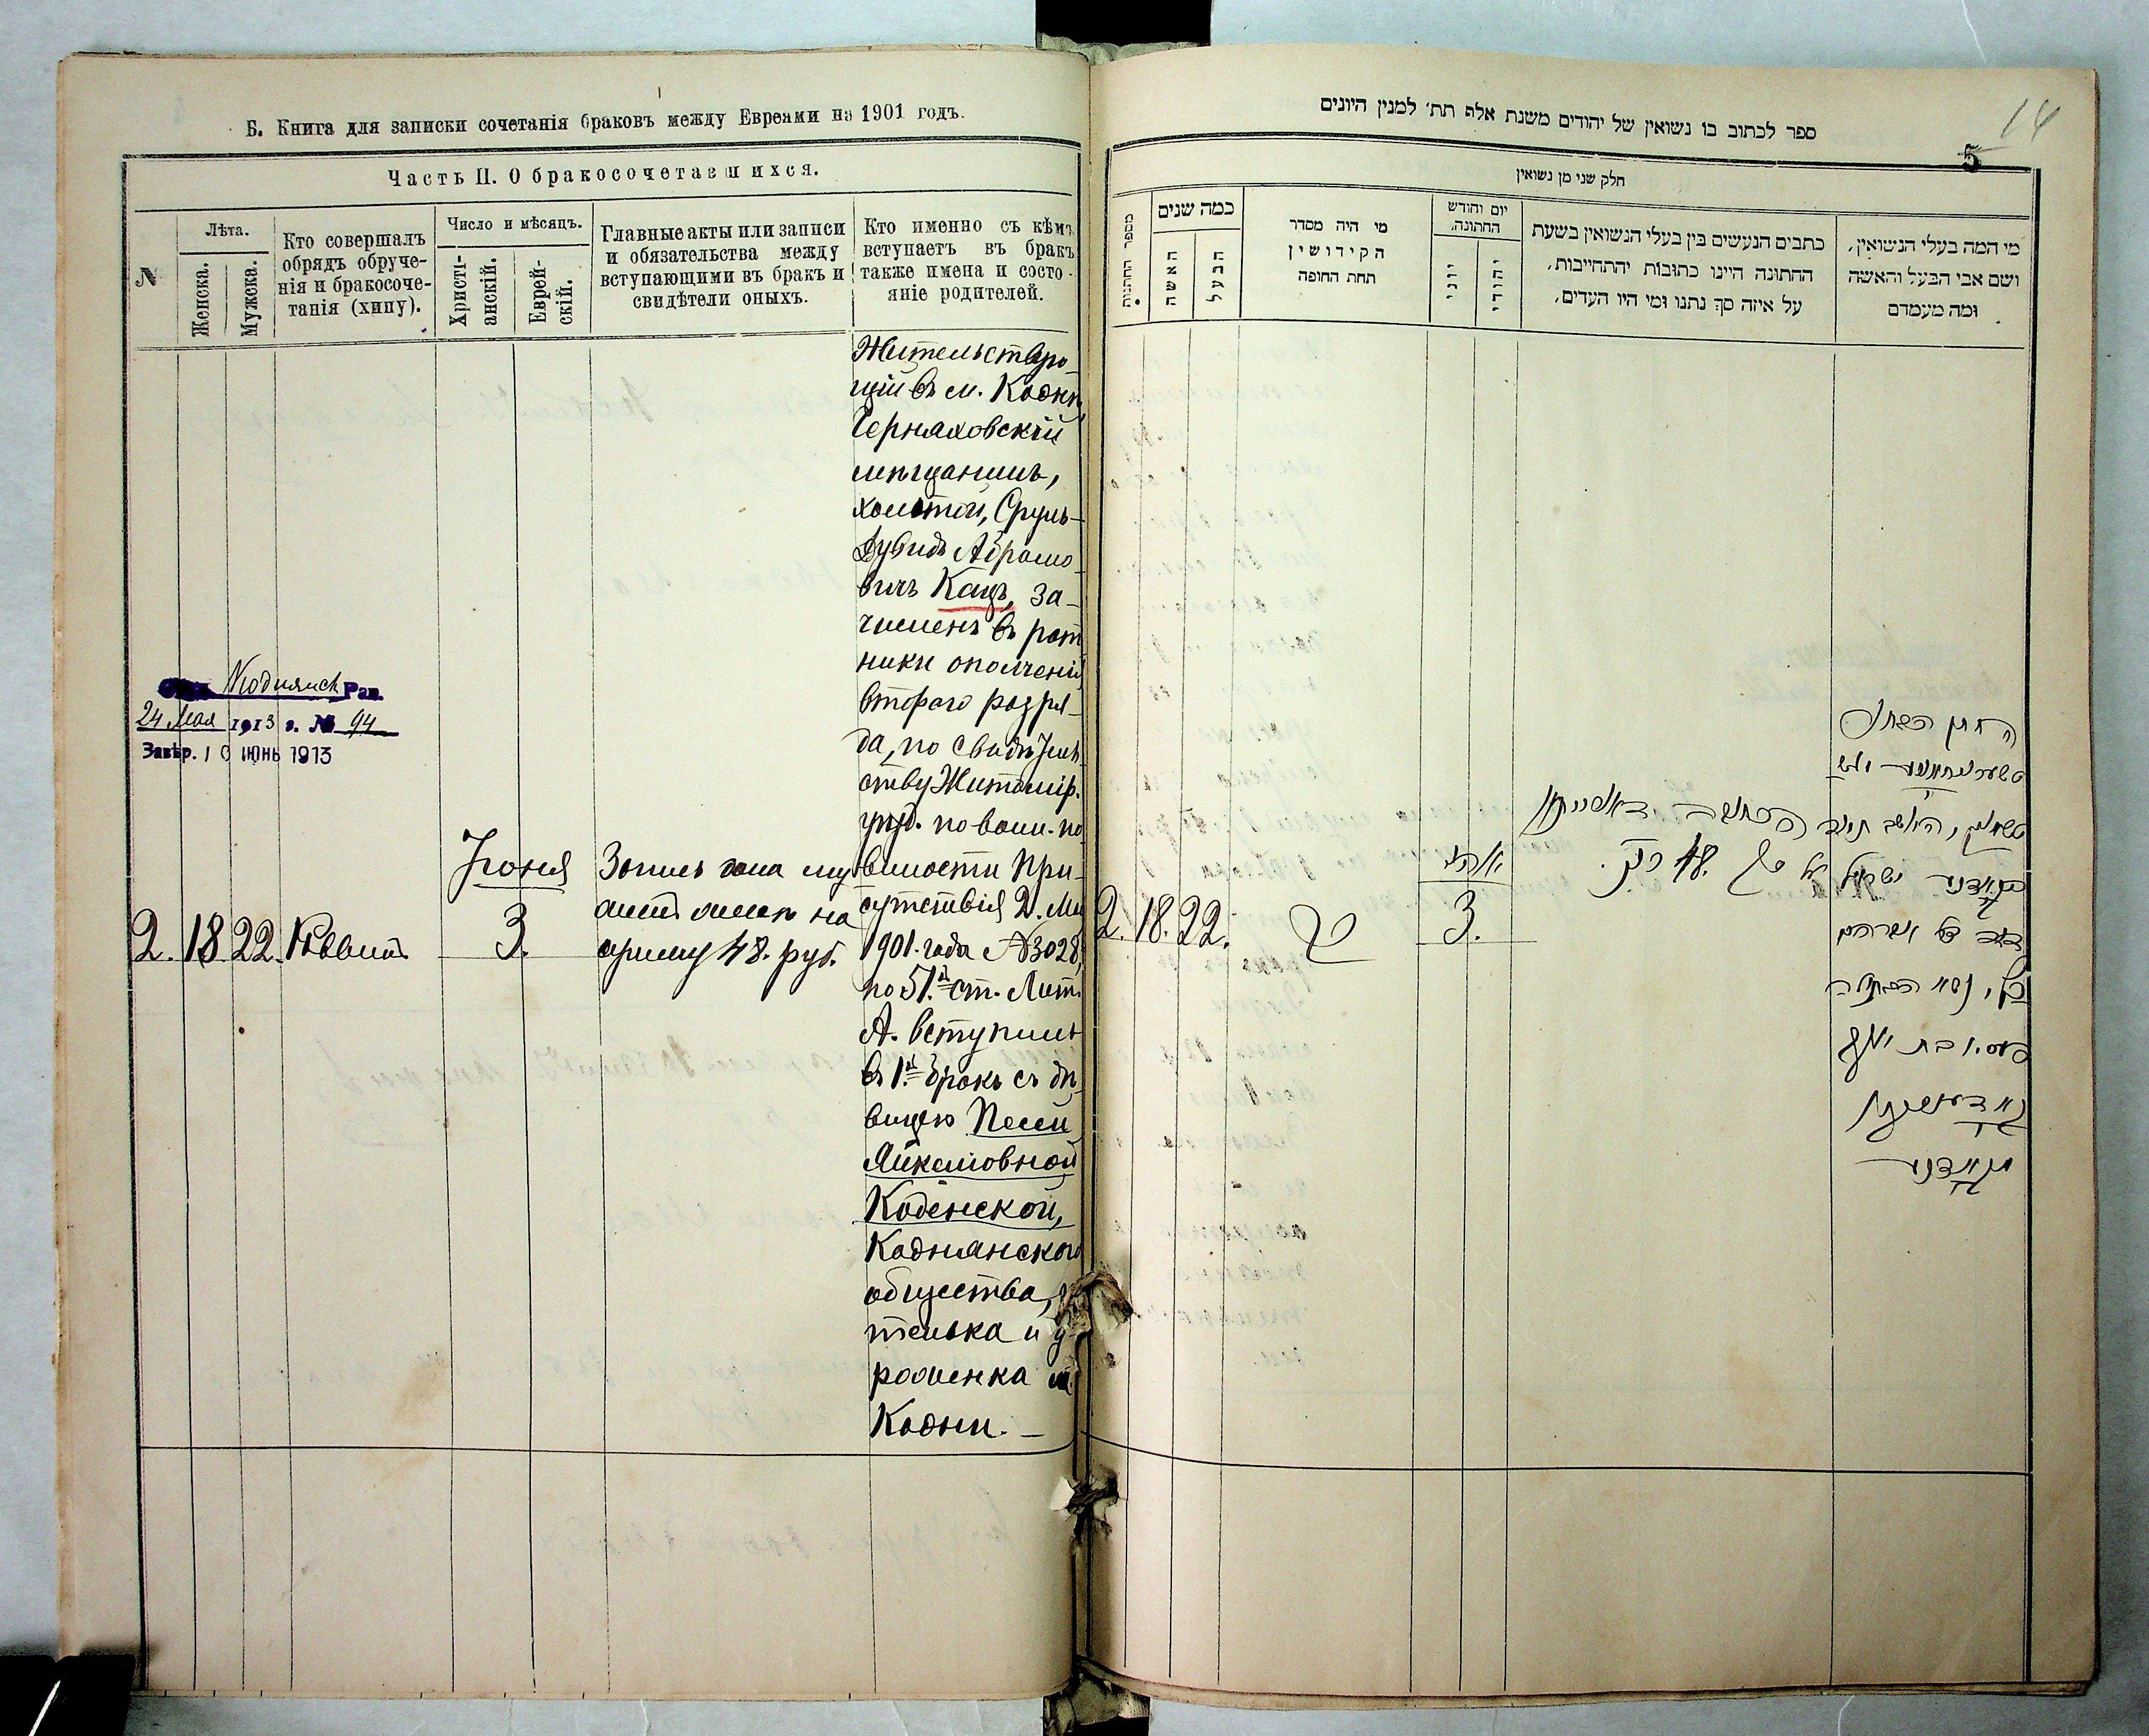 Б. Книга для записки сочетанія браковъ между Евреями на 1901 годъ.
Часть II. О бракосочетавшихся.
N
Лѣта.
Женска.
Мужска.
Кто совершалъ
обрядъ обруче-
нія и бракосоче-
танія (хипу).
Число и мѣсяцъ.
Христі-
анскій.
Еврей-
скій.
Главные акты или записи
и обязательства между
вступающими въ бракъ и
свидѣтели оныхъ.
Кто именно съ кѣмъ
вступаетъ въ бракъ
также имена и состо-
яніе родителей.
24 Мая 1913 г. № 94
Завѣр. 10 июнь 1913
2.
18
22.
Раввинъ
Іюня
3.
Запись дана му
жемъ женѣ на
сумму 48. руб.
Жительствую
щій въ м. Коднѣ
Черняховскій
мѣщанинъ,
холостой, Сруль-
Дувидъ Абрамо
вичъ Кацъ, за-
численъ въ рат
ники ополченія
второго разря-
да, по свидѣтель
ству Житомір.
уѣзд. по воин. по
винности При-
сутствія 2. Мая
1901. года № 3028,
по 51.й ст. Лит.
А. вступилъ
въ 1.й бракъ съ дѣ
вицею Песей
Янкелювной
Коденской,
Коднянского
общества, жи
телька и у
роженка м.
Кодни. —
ספר לכתוב בו נשואין של יהודים משנת אלף תת׳ למנין היונים
14
5
חלק שני מן נשואין
מספר החתונות
כמה שנים
האשה
הבעל
מי היה מסדר
הקידושין
תחת החופה
יום וחודש
החתונה.
יוני
יהודי
כתבים הנעשים בין בעלי הנשואין בשעת
החתונה היינו כתובות יהתחייבות,
על איזה סך נתנו ומי היו העדים,
מי המה בעלי הנשואין,
ושם אבי הבעל והאשה
ומה מעמדם
2.
18.
22.
3.
על סך 48.
דוד בן אברהם
כץ, נשא הבתולה
פעסי בת יענקל